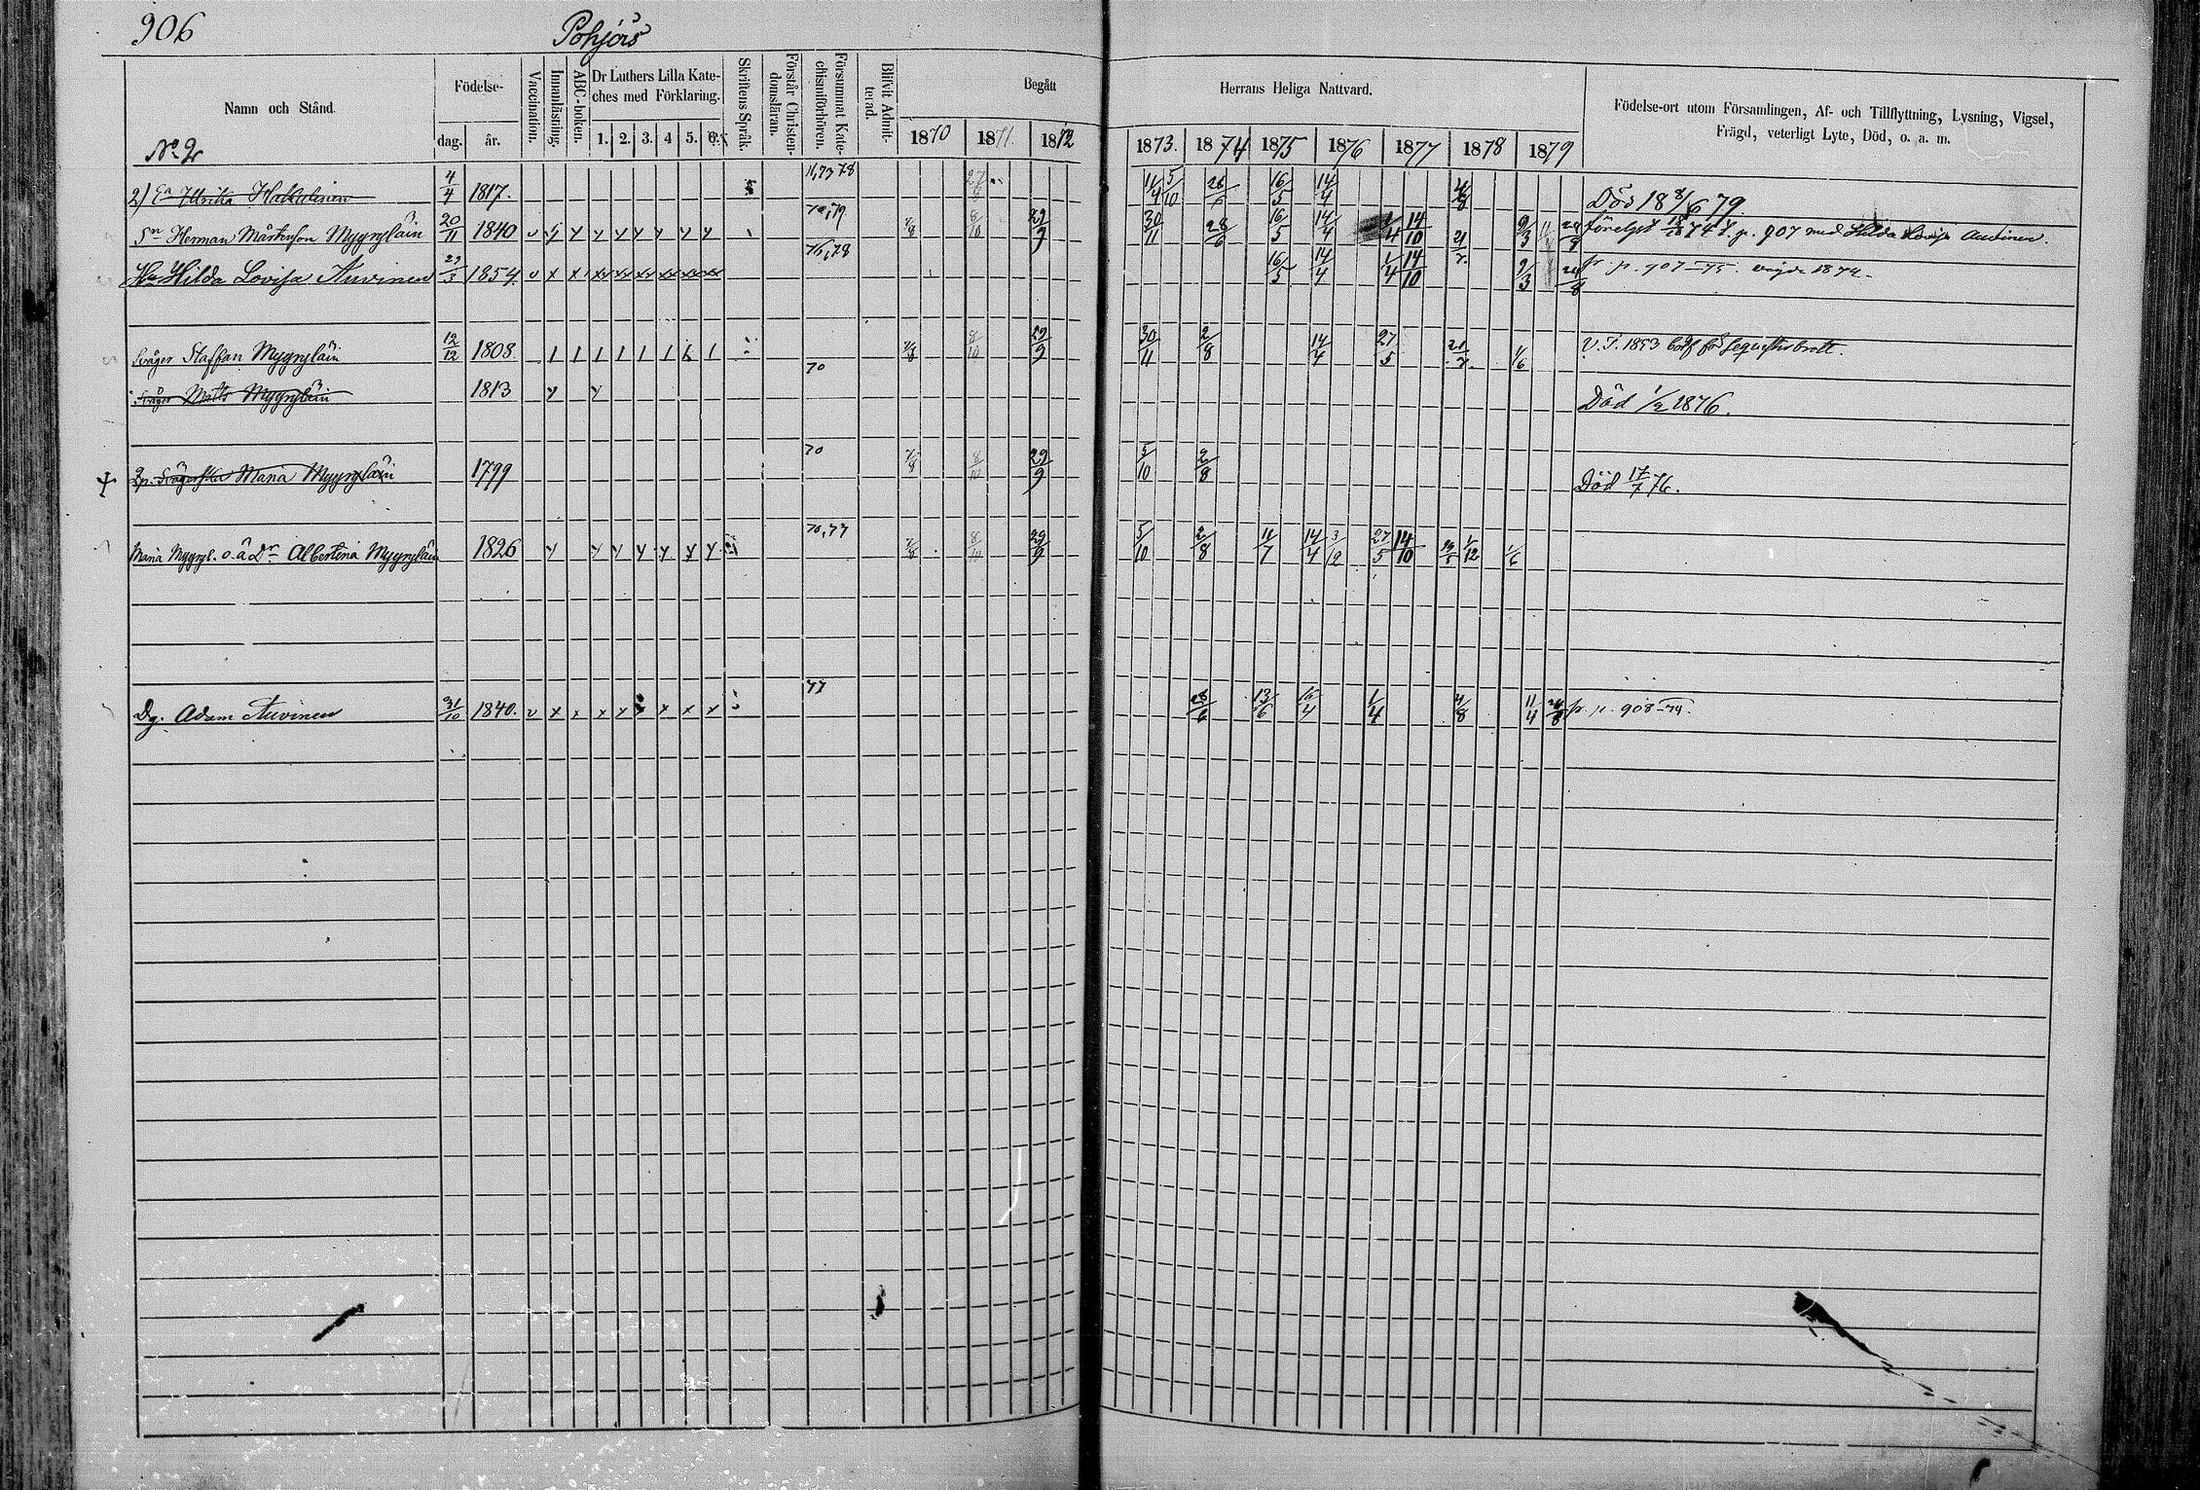 906
Pohjois
Namn och Stånd.
Födelse-
dag. år.
Vaccination.
Innanläsning.
ABC-boken.
Dr Luthers Lilla Kate-
ches med Förklaring.
1. 2. 3. 4 5. 6.
Skriftens Språk.
Förstår Christen-
domsläran.
Försummat Kate-
chismiförhören.
Blifvit Admit-
terad.
Begått Herrans Heliga Nattvard.
1870 1871. 1872 1873. 1874 1875 1876 1877 1878 1879
Födelse-ort utom Församlingen, Af- och Tillflyttning, Lysning, Vigsel,
Frägd, veterligt Lyte, Död, o. a. m.
No 2
2) Ea Ulrika Hakkulinen 4/4 1817. 11,73 78 11/4 5/10 16/5 14/4 Död 18 8/6 79
Sn Herman Mårtenson Myyryläin 20/11 1840 70,79 7/8 8/10 29/9 30/11 28/6 16/5 14/4 1/4 14/10 21/7 9/3 74 p. 907 med Hilda Lovisa Auvinen.
Hu Hilda Lovisa Auvinen 29/3 1854. 76,78 16/5 14/4 1/4 14/10 9/3 fr. p. 907-75. vigde 1874.
Svåger Staffan Myyryläin 12/12 1808. 7/8 8/10 29/9 30/11 2/8 14/4 27/5 21/7 1/6 V. T. 1853
Svåger Matts Myyryläin 1813 70 Död 1/2 1876.
Svägerska Maria Myyryläin 1799 70 7/8 8/10 29/9 5/10 2/8 Död 17/7 76.
Maria Myyryl. o. ä Dr Albertina Myyryläin 1826 70,77 7/8 8/10 29/9 5/10 2/8 11/7 14/4 3/12 27/5 14/10 1/12 1/6
Dg. Adam Auvinen 31/10 1840. 77 28/6 13/6 16/4 1/4 4/8 11/4 24/8 fr. p. 908-74.